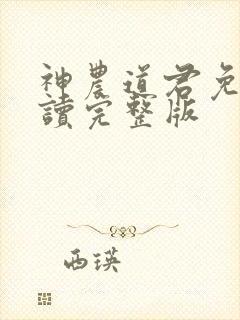 神農道君免
讀完整版
西瑛